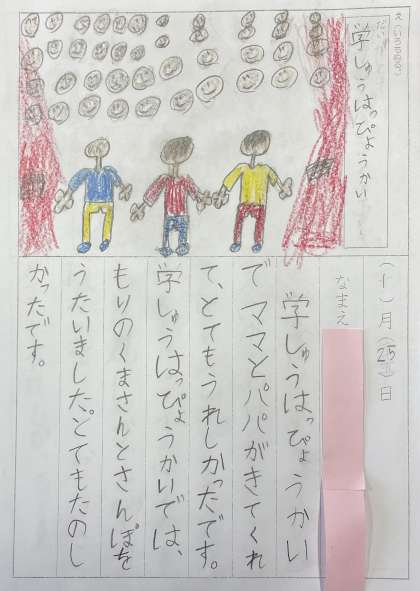 え(いろをぬる)
だい
学しゅうはっぴょうかい
(十)月(25)日
なまえ
学しゅうはっぴょうかい
でママとパパがきてくれ
て、とてもうれしかったです。
学しゅうはっぴょうかいでは、
もりのくまさんとさんぽを
うたいました。とてもたのし
かったです。